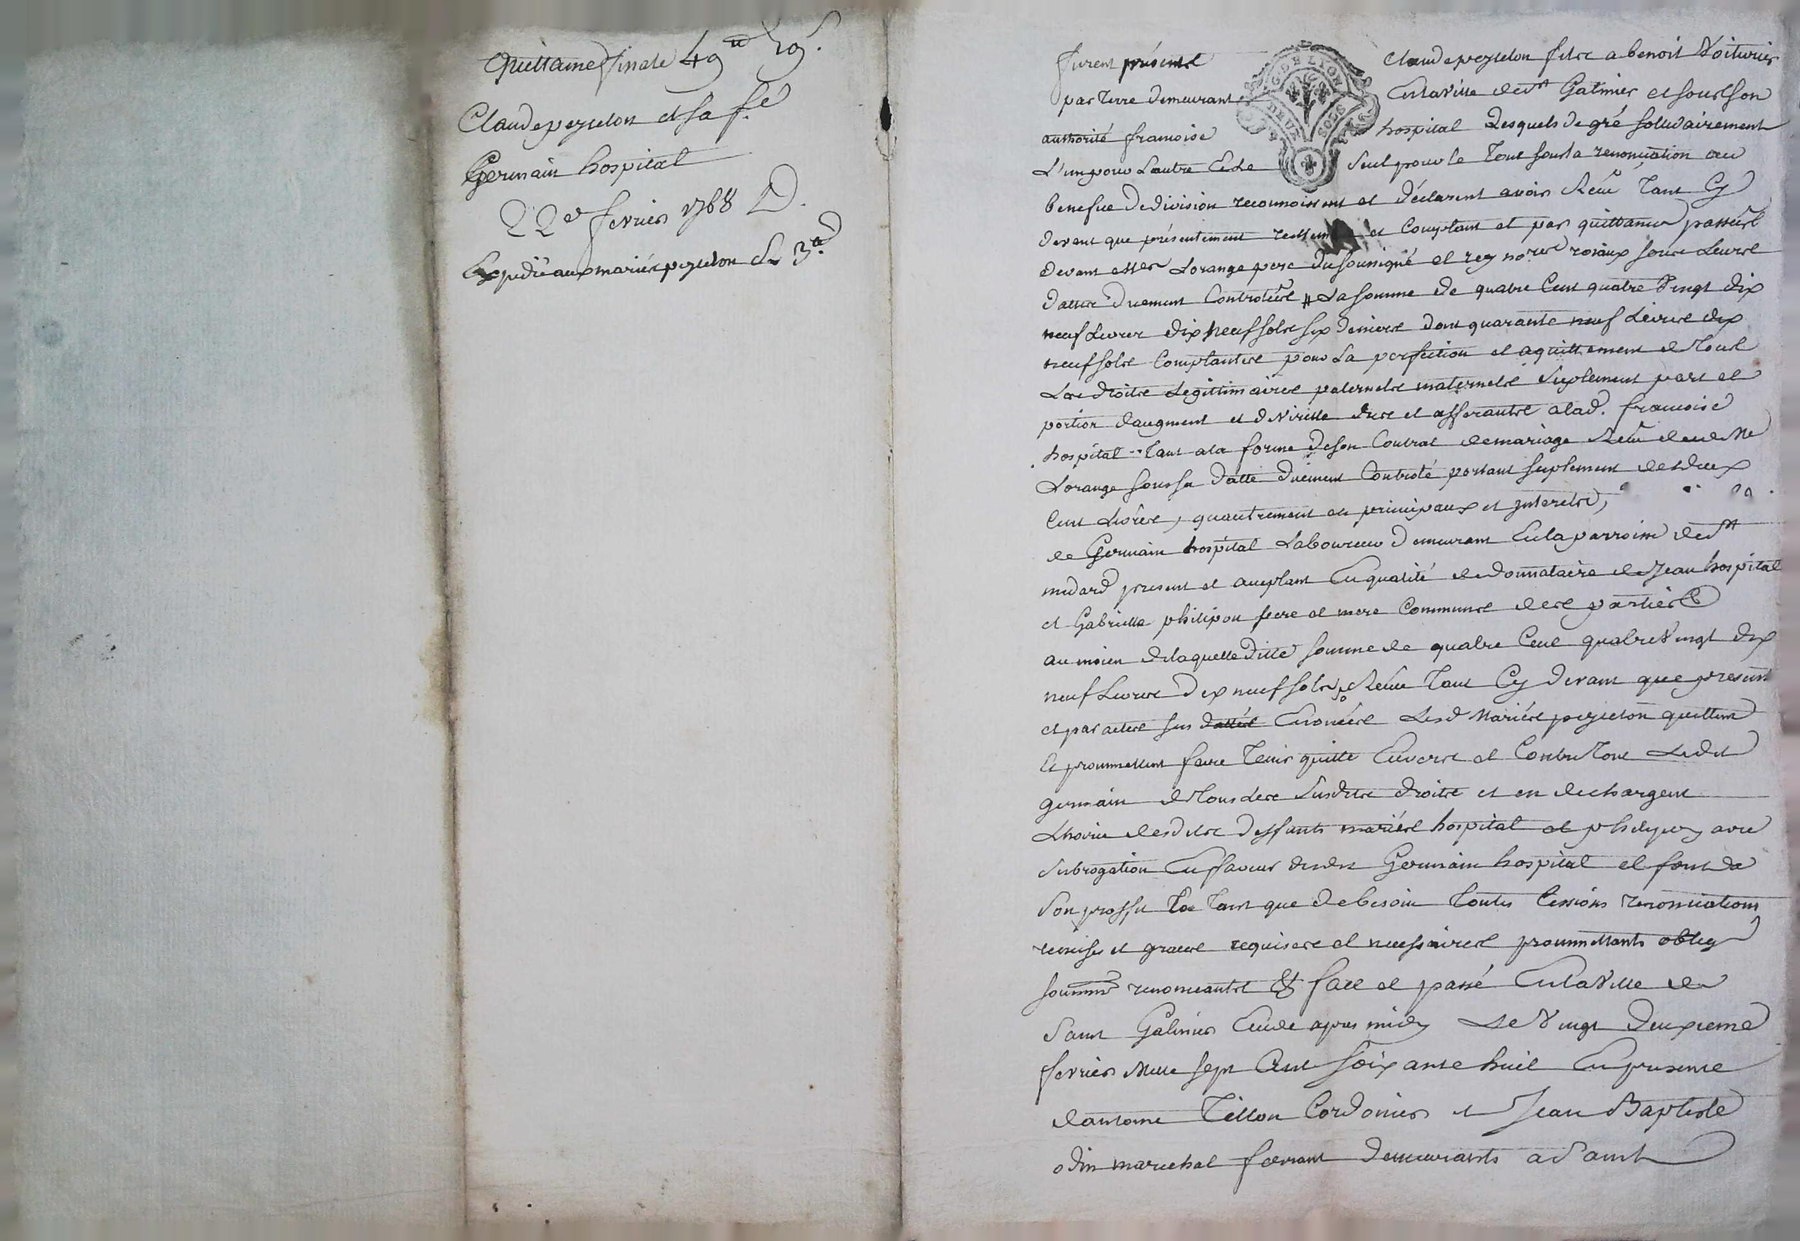 Quittance finale 49ᵗᵗ 19ˢ.
Claude peyselon et sa fᵉ
Germain hospital
22ᵉ fevrier 1768
Expedié aux mariés peyselon
G. DE LYON
DEUX SOLS
furent présents Claude peyselon fils a benoit Voiturier
par terre demeurant en la Ville de Sᵗ Galmier et sous son
authorité francoise hospital Lesquels de gré solidairement
L'un pour L'autre et Le seul pour le Tout sous la renonciation au
benefice de division reconnoissent et déclarent avoir Reçu Tant Cy
devant que présentement et Comptant et par quittances passées
devant Mes Lorange pere du soussigné et rey nores roiaux sous Leurs
dattes Duement Controlées La somme de quatre Cent quatre Vingt dix
neuf Livres dix neuf sols six deniers dont quarante neuf Livres dix
neuf sols Comptants pour La perfection et aquittement de Tous
Les droits Legittimaires paternels maternels suplement part et
portion d'augment et de Virille dues et afferantes a lad. francoise
hospital Tant a la forme de son Contrat de mariage Reçu dud Me
Lorange sous sa datte duement Controlé portant suplement de deux
Cent Livres, qu'autrement en principaux et interets,
de Germain hospital Laboureur demeurant en la parroisse de Sᵗ
medard present et aceptant En qualité de donnataire de Jean hospital
et Gabrielle philipon pere et mere Communs des parties
au moien de laquelle ditte somme de quatre Cent quatre Vingt dix
neuf Livres dix neuf sols Reçue Tant Cy devant que present
et par actes sus dattés Enoncés Lesd Mariés peyselon quittent
et promettent faire Tenir quitte Envers et Contre Tous Ledit
germain de Tous Les susdits droits et en dechargent
L'hoirie desdits deffunts mariés hospital et philipon avec
subrogation En faveur dudit Germain hospital et font a
son proffit En Tant que de besoin Toutes Cessions renonciations
remises et graces requises et necessaires promettants oblig
soummᵉ renonceants &ᵃ fait et passé En la Ville de
Saint Galmier Etude apres midy Le Vingt deuxieme
fevrier Mille sept Cent soixante huit En presence
d'antoine Tillon Cordonier et Jean Baptiste
odin marechal ferrant demeurants a Saint